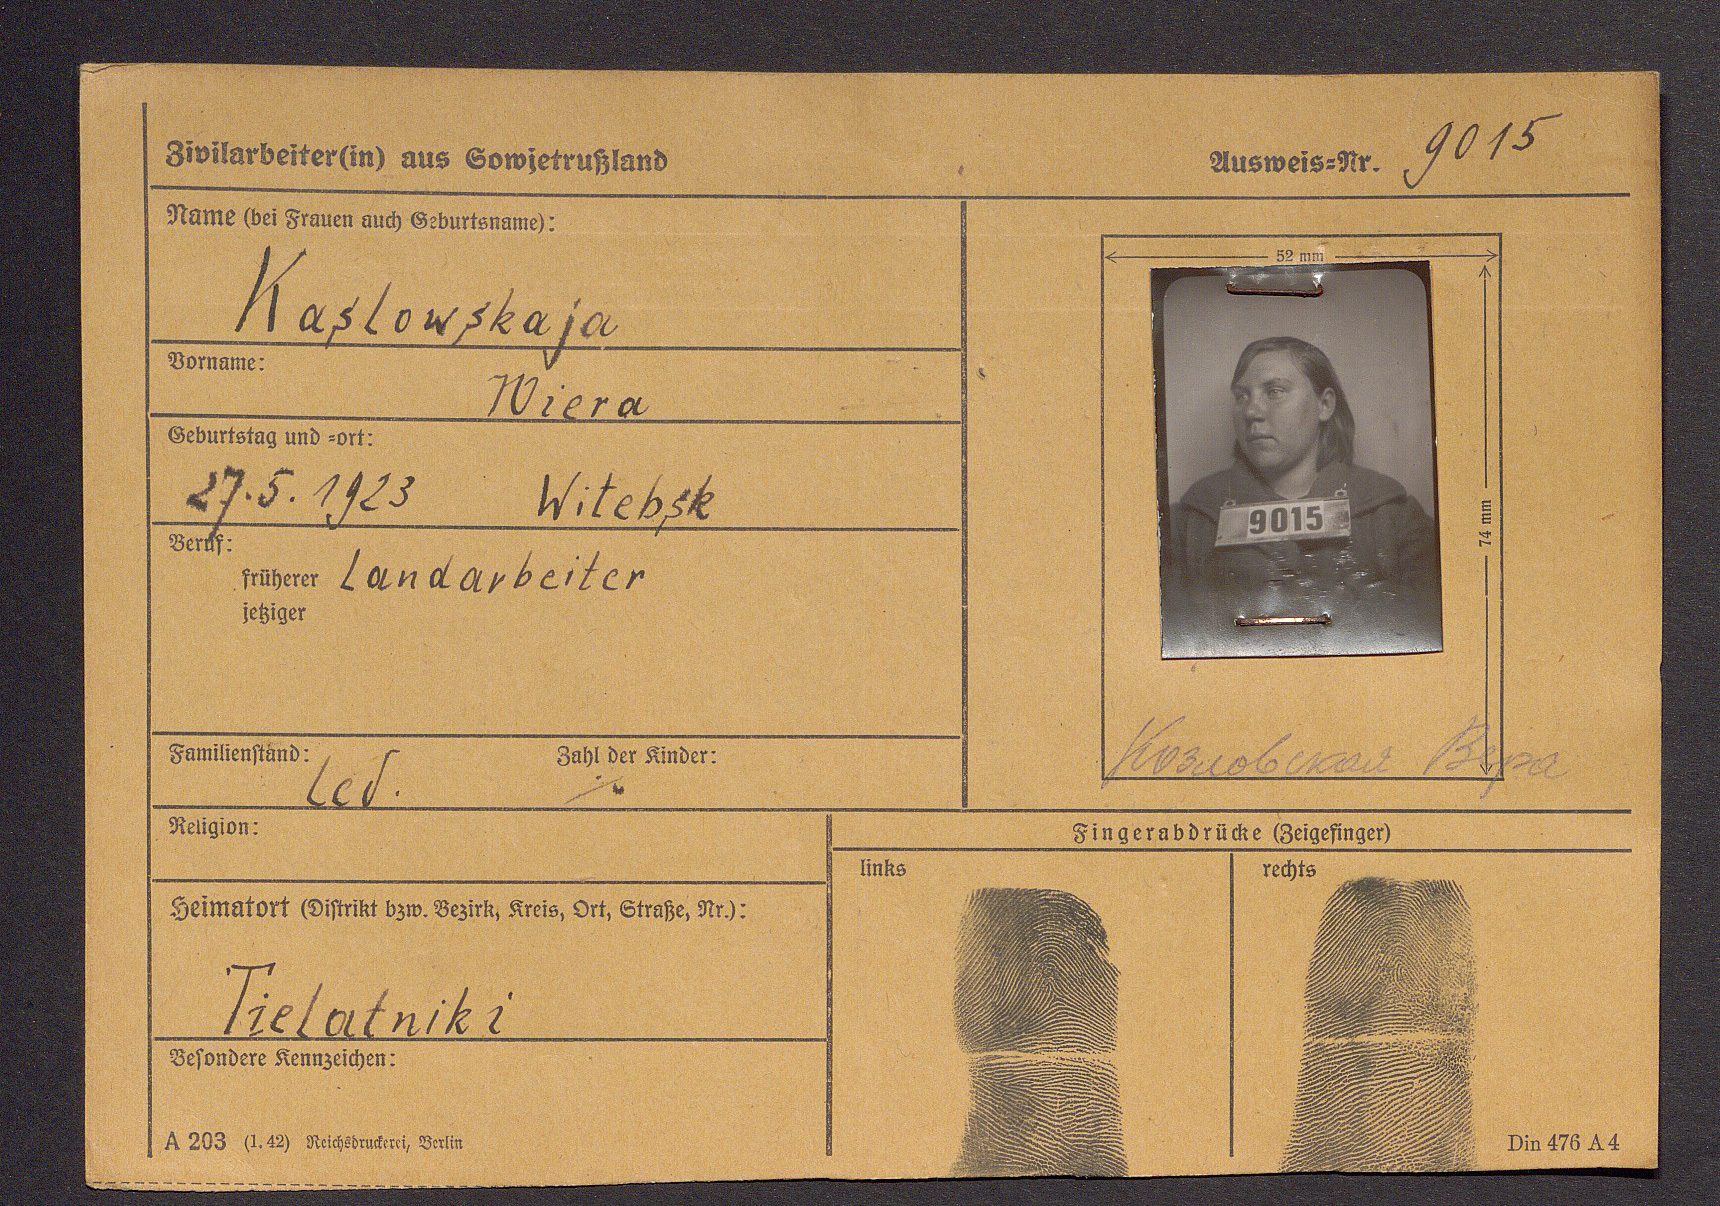 Zivilarbeiter(in) aus Sowjetrußland
Ausweis=Nr. 9015
Name (bei Frauen auch Geburtsname):
Kaslowskaja
Vorname:
Wiera
Geburtstag und =ort:
27.5.1923 Witebsk
Beruf:
früherer Landarbeiter
jetziger
Familienstand: Zahl der Kinder:
Led.
Religion:
Heimatort (Distrikt bzw. Bezirk, Kreis, Ort, Straße, Nr.):
Tielatniki
Besondere Kennzeichen:
A 203 (1. 42) Reichsdruckerei, Berlin
52 mm
74 mm
9015
Козловская Вера
Fingerabdrücke (Zeigefinger)
links rechts
Din 476 A 4